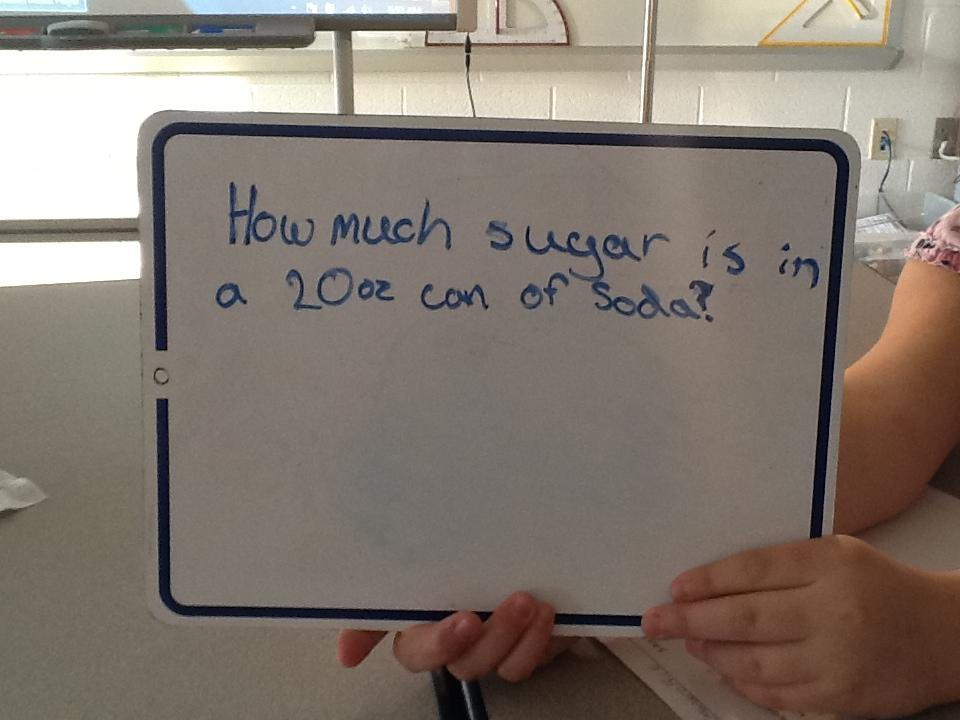 How much sugar is in
a 20oz can of soda?